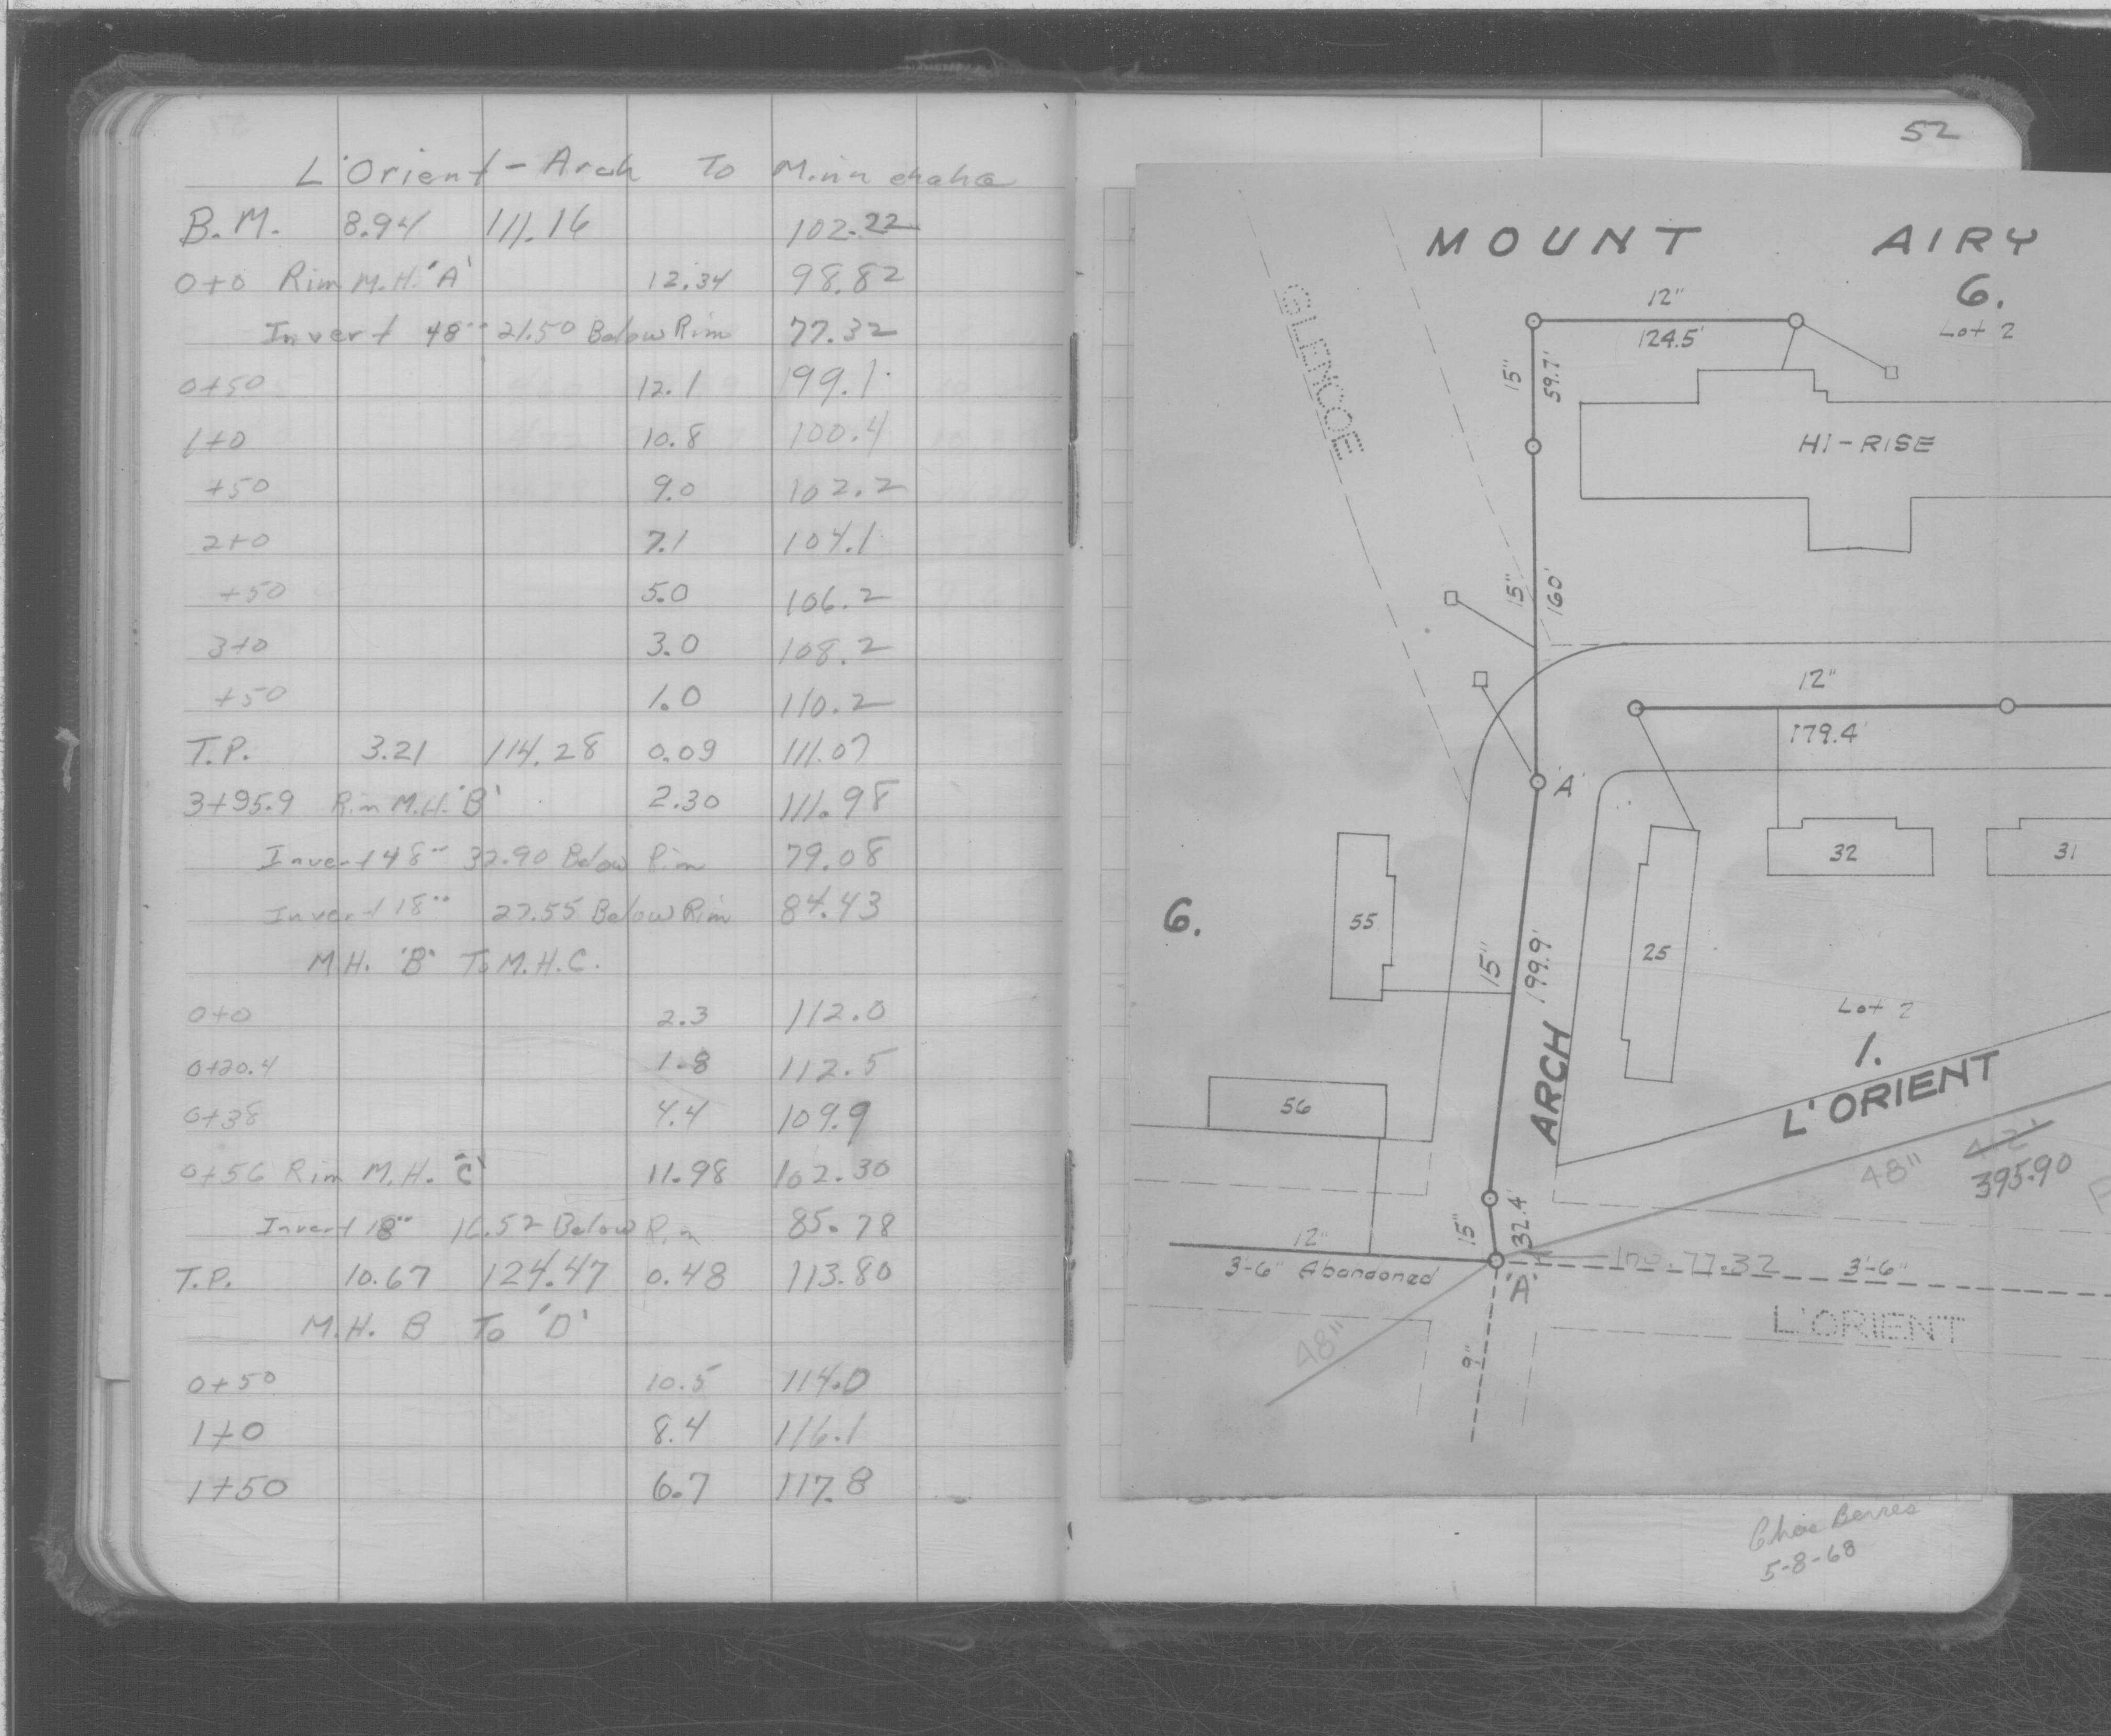 L'Orient - Arch To Minnehaha
B.M. 8.94 111.16 102.22
0+0 Rim M.H. 'A' 12.34 98.82
Invert 48" 21.50 Below Rim 77.32
0+50 12.1 99.1
1+0 10.8 100.4
+50 9.0 102.2
2+0 7.1 104.1
+50 5.0 106.2
3+0 3.0 108.2
+50 1.0 110.2
T.P. 3.21 114.28 0.09 111.07
3+95.9 Rim M.H. 'B' 2.30 111.98
Invert 48" 32.90 Below Rim 79.08
Invert 18" 27.55 Below Rim 84.43
M.H. 'B' To M.H.C.
0+0 2.3 112.0
0+20.4 1.8 112.5
0+38 4.4 109.9
0+56 Rim M.H. 'C' 11.98 102.30
Invert 18" 16.52 Below Rim 85.78
T.P. 10.67 124.47 0.48 113.80
M.H. B To 'D'
0+50 10.5 114.0
1+0 8.4 116.1
1+50 6.7 117.8
52
MOUNT AIRY
6.
Lot 2
12"
124.5'
GLENCOE
15"
59.7'
HI-RISE
15"
160'
12"
179.4'
'A'
32
31
55
25
6.
15"
199.9'
ARCH
Lot 2
1.
L'ORIENT
56
48"
42'
395.90
15"
32.4'
12"
3'-6" Abandoned
'A'
Inv. 77.32
3'-6"
L'ORIENT
48"
9"
Chas Berres
5-8-68